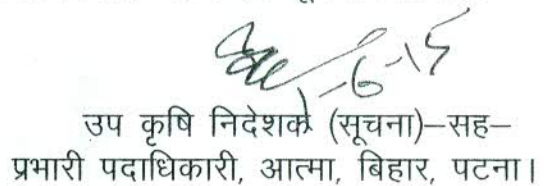 उप कृषि निदेशक (सूचना)–सह–
प्रभारी पदाधिकारी, आत्मा, बिहार, पटना।